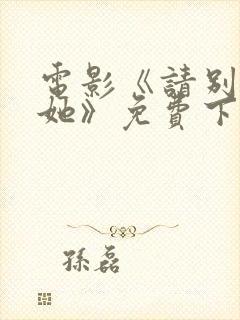 電影《請別
她》免費下
孫磊